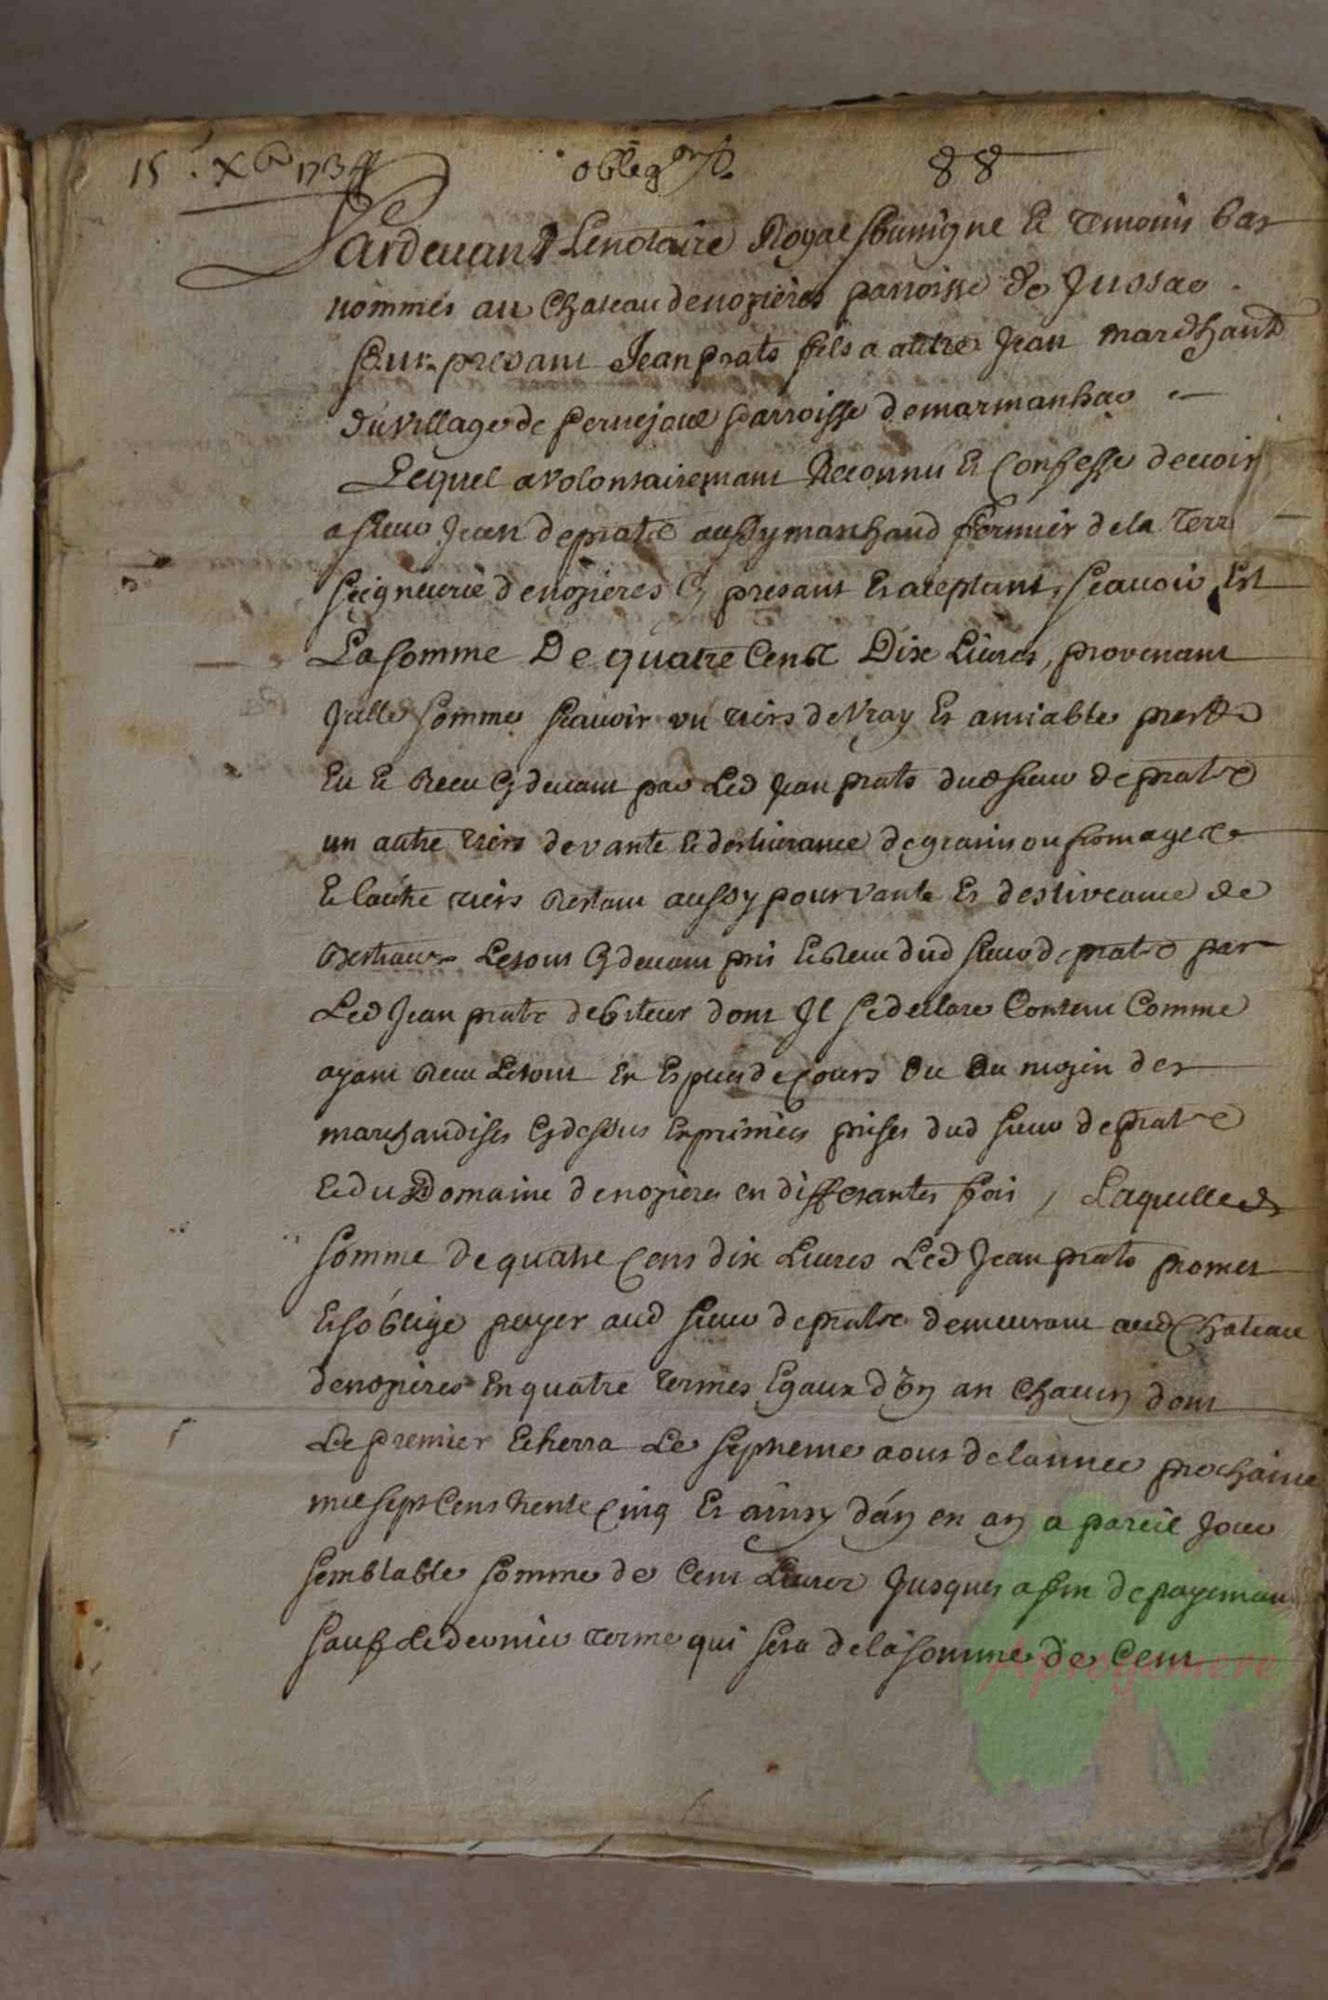 15 Xbre 1734 obligaon 88
Pardevant Le notaire Royal soussigne Et temoins bas
nommés au Chateau de nozieres parroisse de Jussac
feut presant Jean prats fils a autre Jean marchant
du village de parroisse de marmanhac
Lequel a volontairemant Reconnu Et Confesse devoir
a sieur Jean de pratx aussy marchand fermier de la Terre
Seigneurie de nozieres Cy presant Et aceptant, scavoir Est
La somme De quatre Cent Dix Livres, provenant
Jcelle somme scavoir un tiers de Vray Et amiable prest
Eu Et Receu Cy devant par Led Jean prats dud sieur de pratx
un autre tiers de vante Et deslivrance de grains ou fromages
Et lautre tiers Restant aussy pour vante Et deslivrance de
Bestiaux Le tout Cy devant pris Et Receu dud sieur de pratx par
Led Jean prats debiteur dont Jl se declare Content Comme
ayant Receu Le tout En Especes de Cours Ou Au moyen des
marchandises Cy dessus Exprimées prises dud sieur de pratx
Et du Domaine de nozieres en differantes fois, Laquelle d
somme de quatre Cens dix Livres Led Jean prats promet
Et soblige payer aud sieur de pratx demeurant aud Chateau
de nozieres En quatre termes Egaux d'un an Chacun dont
Le premier Echerra Le septieme aout de lannee prochaine
mil sept Cens trente Cinq Et ainsy d'an en an a pareil Jour
semblable somme de Cent Livres Jusques a fin de payemant
sauf Le dernier terme qui sera de la somme de Cent
Aprogemere